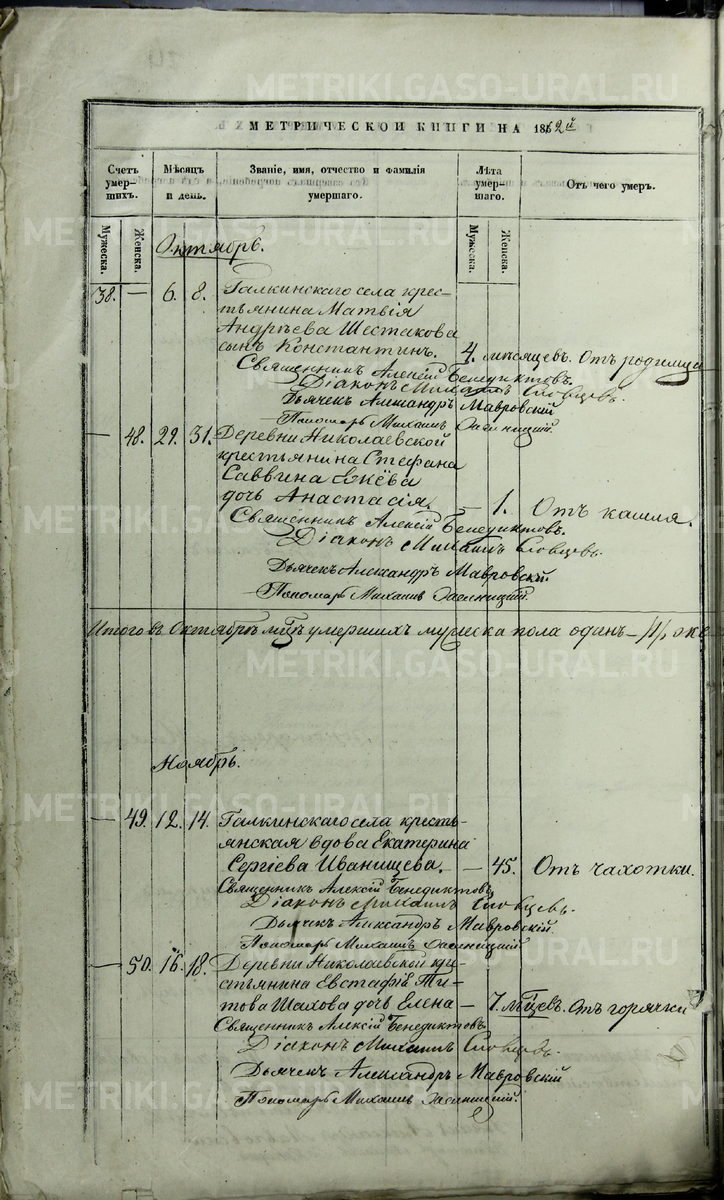 МЕТРИЧЕСКОЙ КНИГИ НА 1862й
Счет умер-шихъ. Мѣсяцъ и день. Званіе, имя, отчество и фамилія умершаго. Лѣта умер-шаго. Отъ чего умеръ.
Мужеска. Женска. Мужеска. Женска.
Октябрь.
38. — 6. 8. Галкинскаго села крес-
тьянина Матвія
Андрѣева Шестакова
сынъ Константинъ. 4. мѣсяцевъ. Отъ родимца
Священникъ Алексій Бенедиктовъ.
Діаконъ Михаилъ Словцовъ.
Дьячекъ Александръ Мавровскій
Пономарь Михаилъ
— 48. 29. 31. Деревни Николаевской
крестьянина Стефана
Саввина Екёва
дочь Анастасія. — 1. Отъ кашля.
Священникъ Алексій Бенедиктовъ.
Діаконъ Михаилъ Словцовъ.
Дьячекъ Александръ Мавровскій
Пономарь Михаилъ
Итого въ Октябрѣ мцѣ умершихъ мужеска пола одинъ — /1/,
Ноябрь.
— 49. 12. 14. Галкинскаго села кресть-
янская вдова Екатерина
Сергіева Иванищева. — 45. Отъ чахотки.
Священникъ Алексій Бенедиктовъ
Діаконъ Михаилъ Словцовъ.
Дьячекъ Александръ Мавровскій.
Пономарь Михаилъ
— 50. 16. 18. Деревни Николаевской кре-
стьянина Евстафія Ти-
това Шахова дочь Елена — 7. мцевъ. Отъ горячки
Священникъ Алексій Бенедиктовъ
Діаконъ Михаилъ Словцовъ.
Дьячекъ Александръ Мавровскій
Пономарь Михаилъ
METRIKI.GASO-URAL.RU